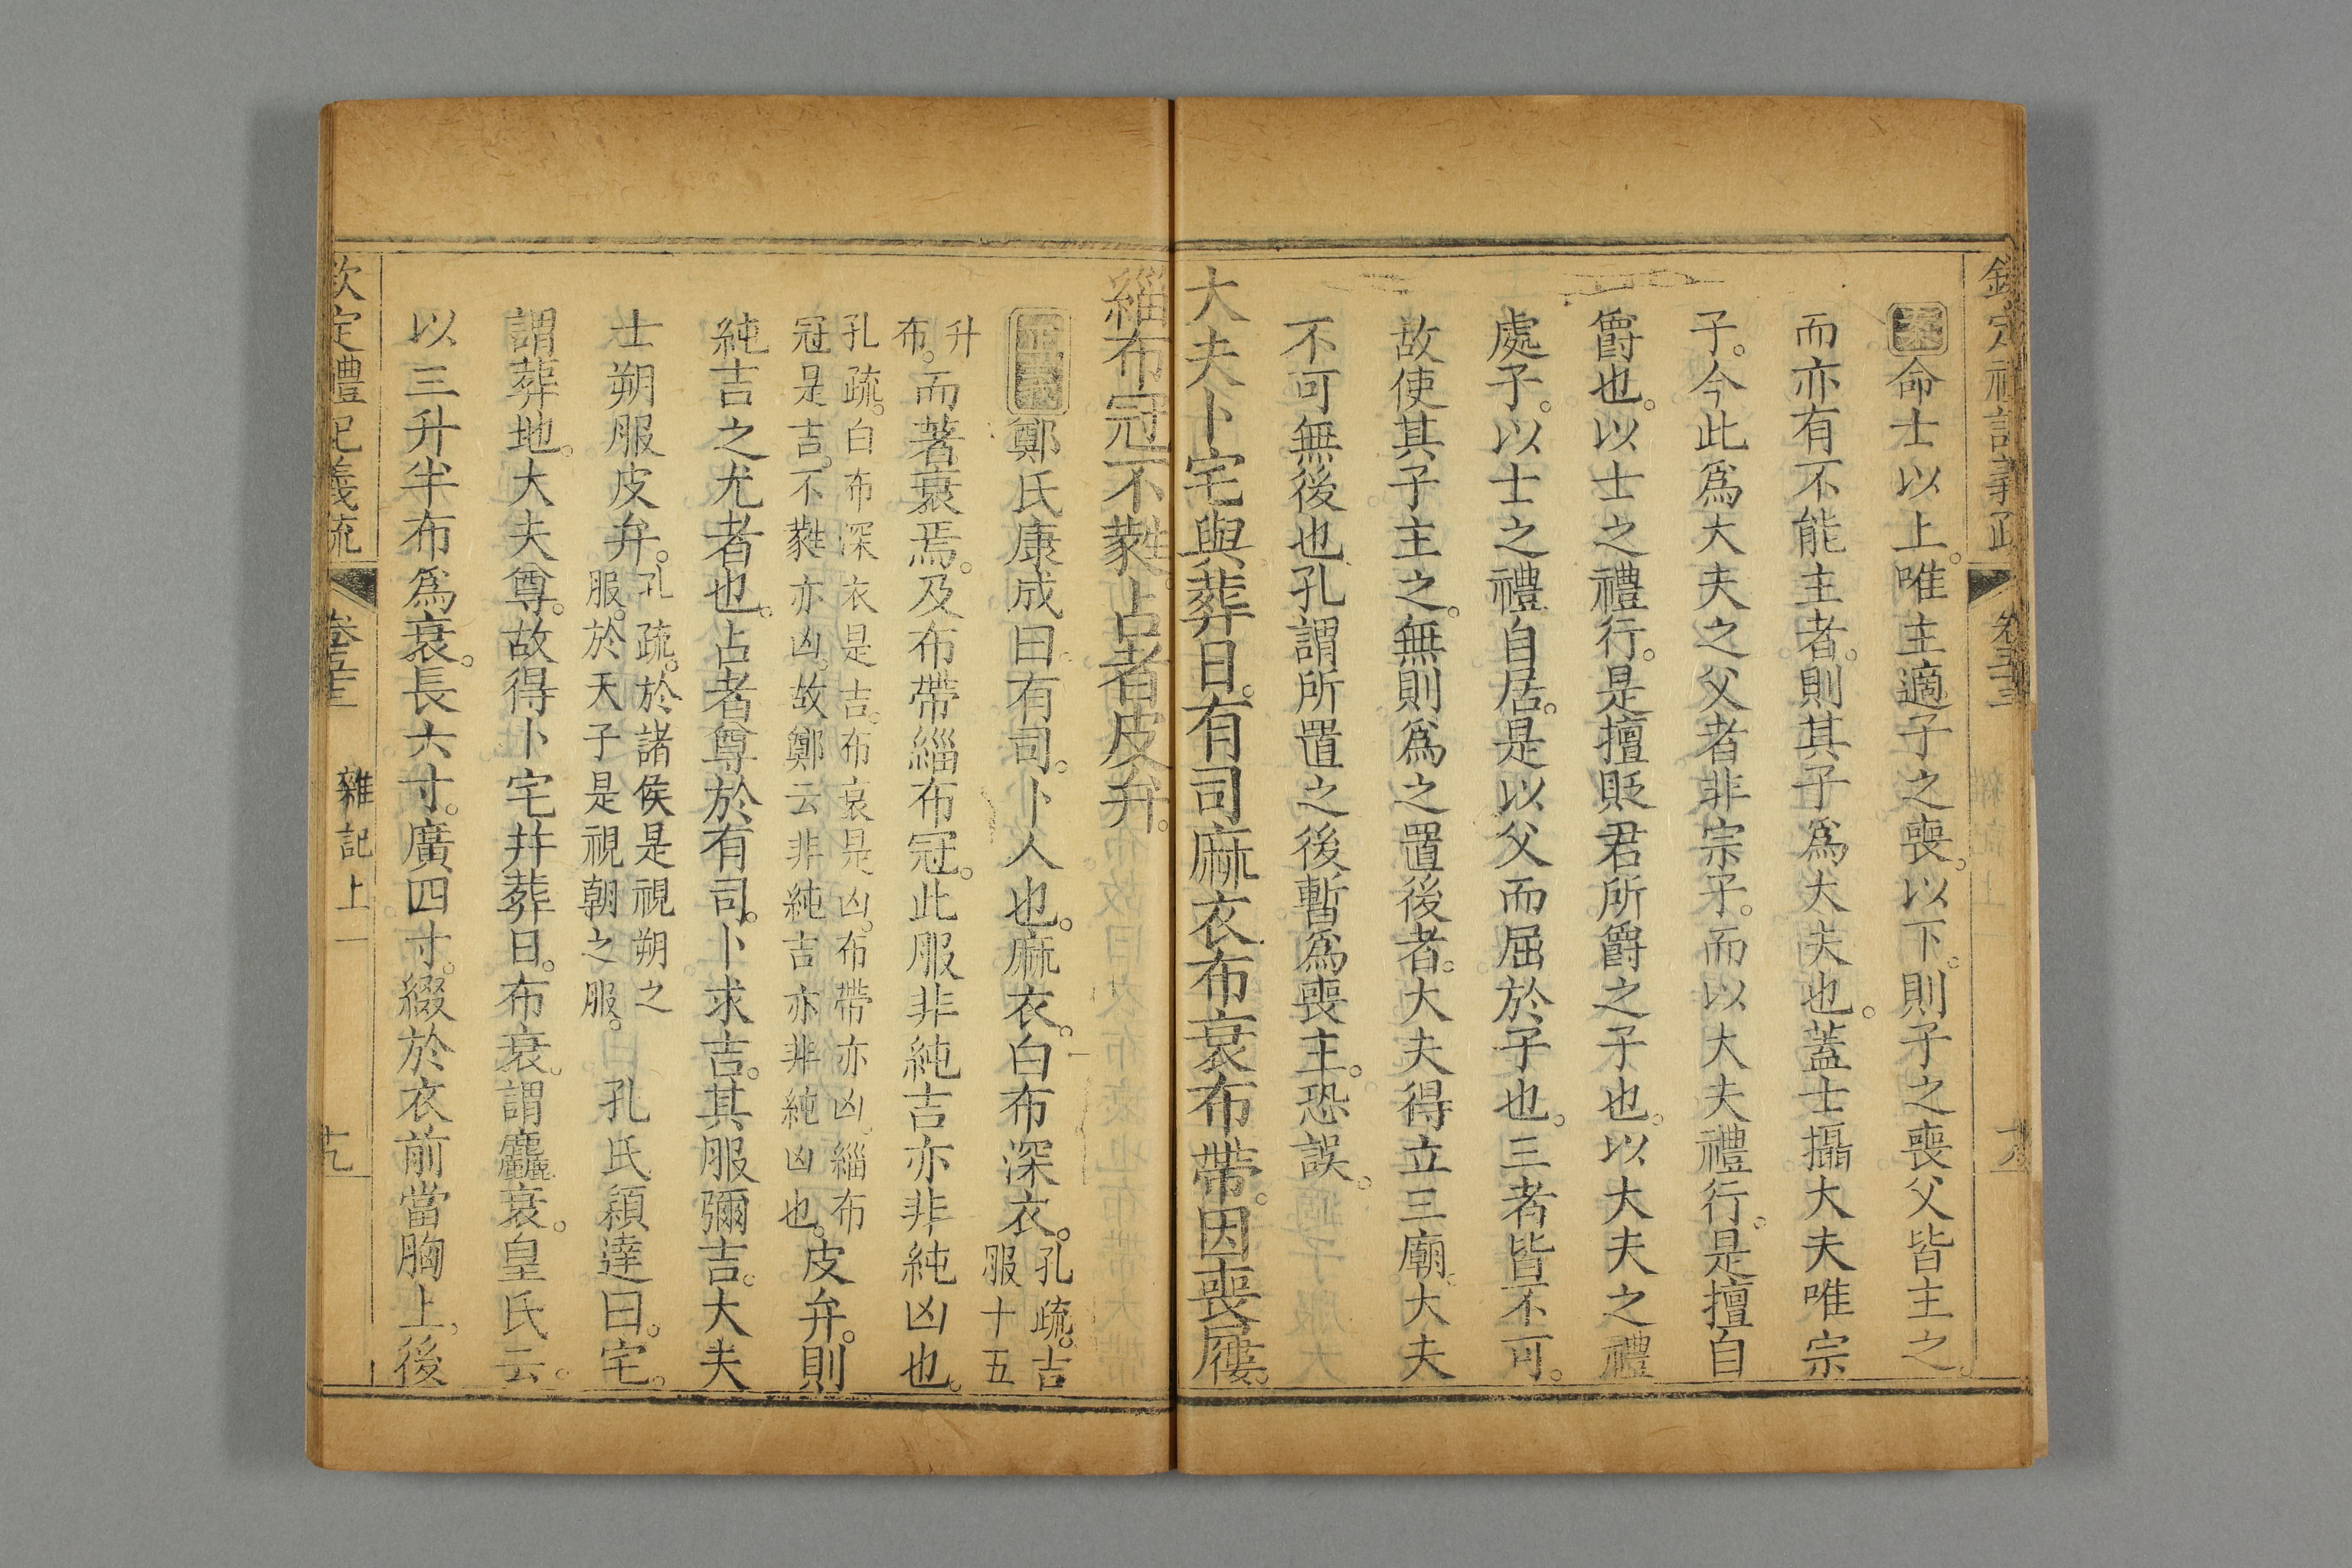 欽定禮記義疏 卷五十三 雜記上 十八
案命士以上。唯主適子之喪。以下。則子之喪父皆主之。
而亦有不能主者。則其子爲大夫也。蓋士攝大夫唯宗
子。今此爲大夫之父者非宗子。而以大夫禮行。是擅自
爵也。以士之禮行。是擅貶君所爵之子也。以大夫之禮
處子。以士之禮自居。是以父而屈於子也。三者皆不可。
故使其子主之。無則爲之置後者。大夫得立三廟。大夫
不可無後也孔謂所置之後暫爲喪主。恐誤。
大夫卜宅與葬日。有司麻衣布衰布帶。因喪屨。
緇布冠不蕤。占者皮弁。
正義鄭氏康成曰。有司。卜人也。麻衣。白布深衣。孔疏。吉服十五
升布。而著衰焉。及布帶緇布冠。此服非純吉亦非純凶也。
孔疏。白布深衣是吉。布衰是凶。布帶亦凶。緇布
冠是吉。不蕤亦凶。故鄭云非純吉亦非純凶也。皮弁。則
純吉之尤者也。占者尊於有司。卜求吉。其服彌吉。大夫
士朔服皮弁。孔疏。於諸侯是視朔之服。於天子是視朝之服。 孔氏穎達曰。宅。
謂葬地。大夫尊。故得卜宅幷葬日。布衰。謂麤衰。皇氏云。
以三升半布爲衰。長六寸。廣四寸。綴於衣前當胸上。後
欽定禮記義疏 卷五十三 雜記上 十九